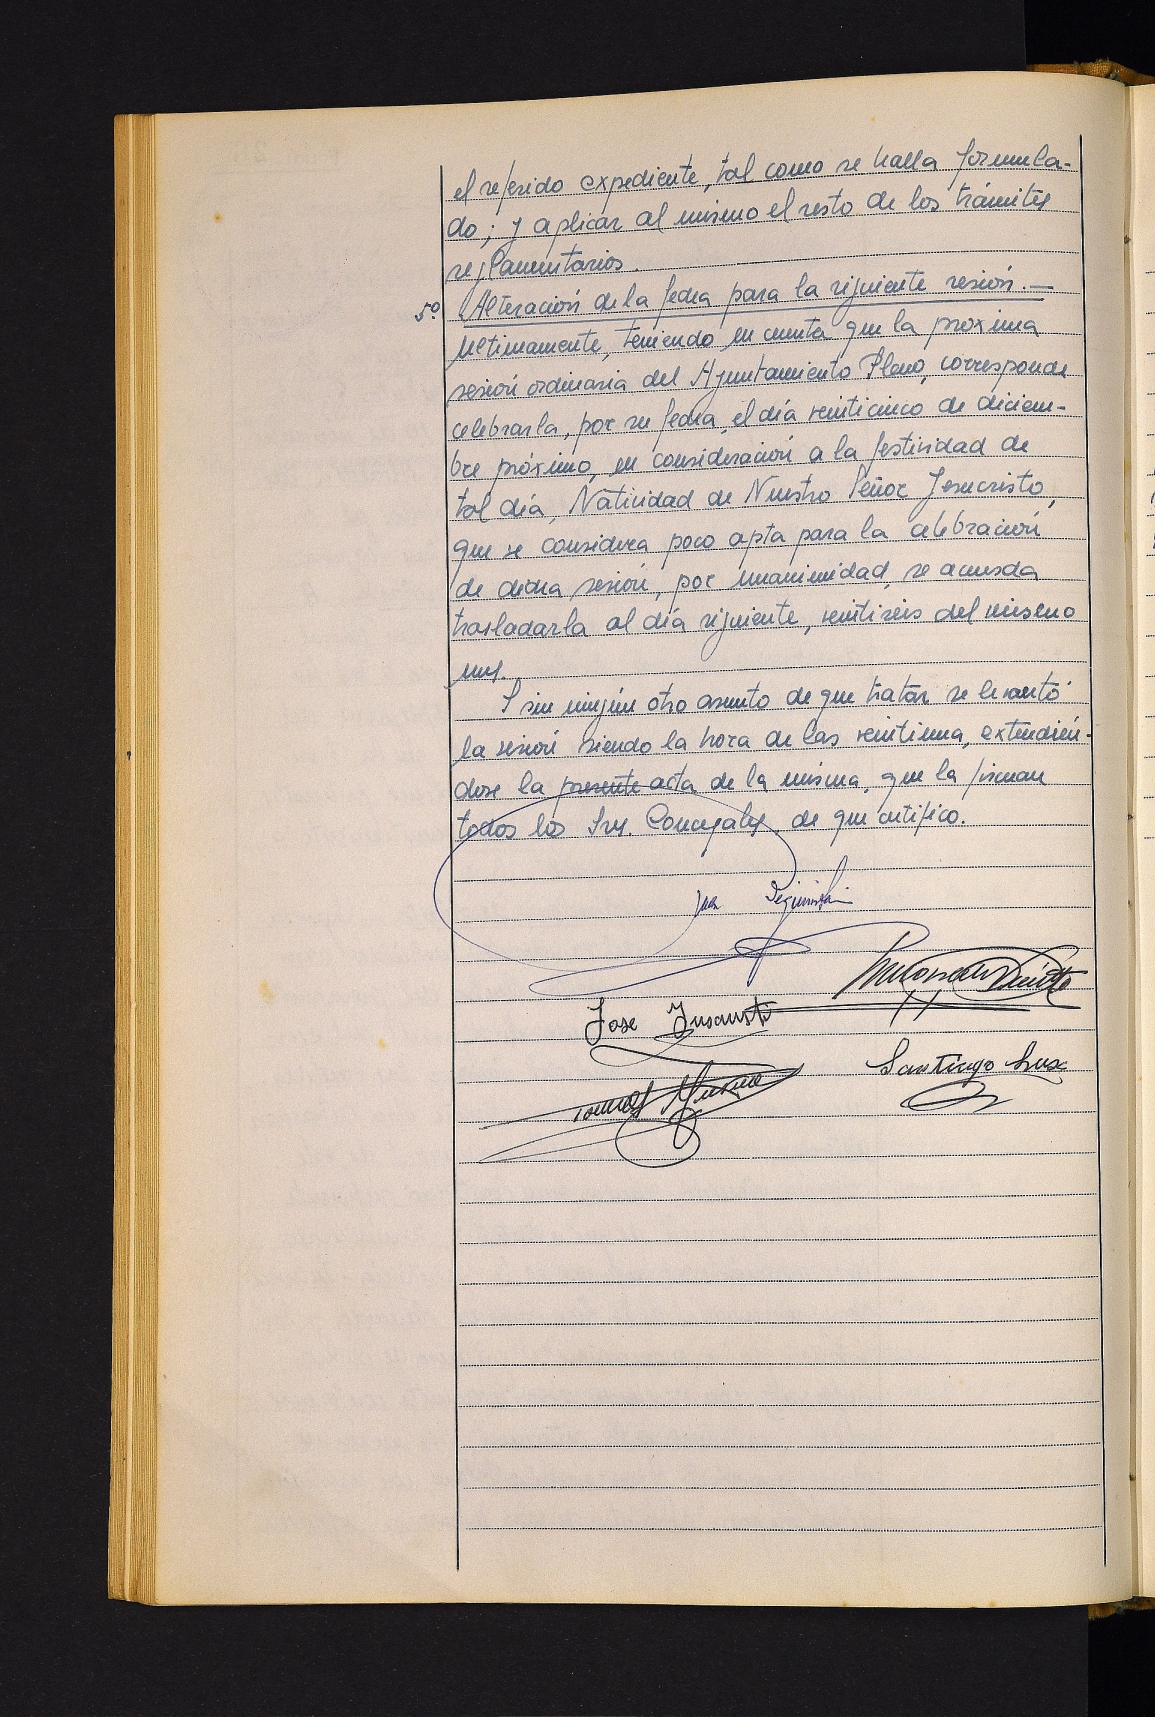 el referido expediente, tal como se halla formula-
do; y aplicar al mismo el resto de los trámites
reglamentarios.
5º Alteración de la fecha para la siguiente sesión.—
Ultimamente, teniendo en cuenta que la proxima
sesión ordinaria del Ayuntamiento Pleno, corresponde
celebrarla, por su fecha, el día veinticinco de diciem-
bre próximo, en consideración a la festividad de
tal día, Natividad de Nuestro Señor Jesucristo,
que se considera poco apta para la celebración
de dicha sesión, por unanimidad, se acuerda
trasladarla al día siguiente, veintiseis del mismo
mes.
Y sin ningún otro asunto de que tratar se levantó
la sesión siendo la hora de las veintiuna, extendién-
dose la presente acta de la misma, que la firman
todos los Srs. Concejales de que certifico.
Juan
Jose
Santiago
Tomas